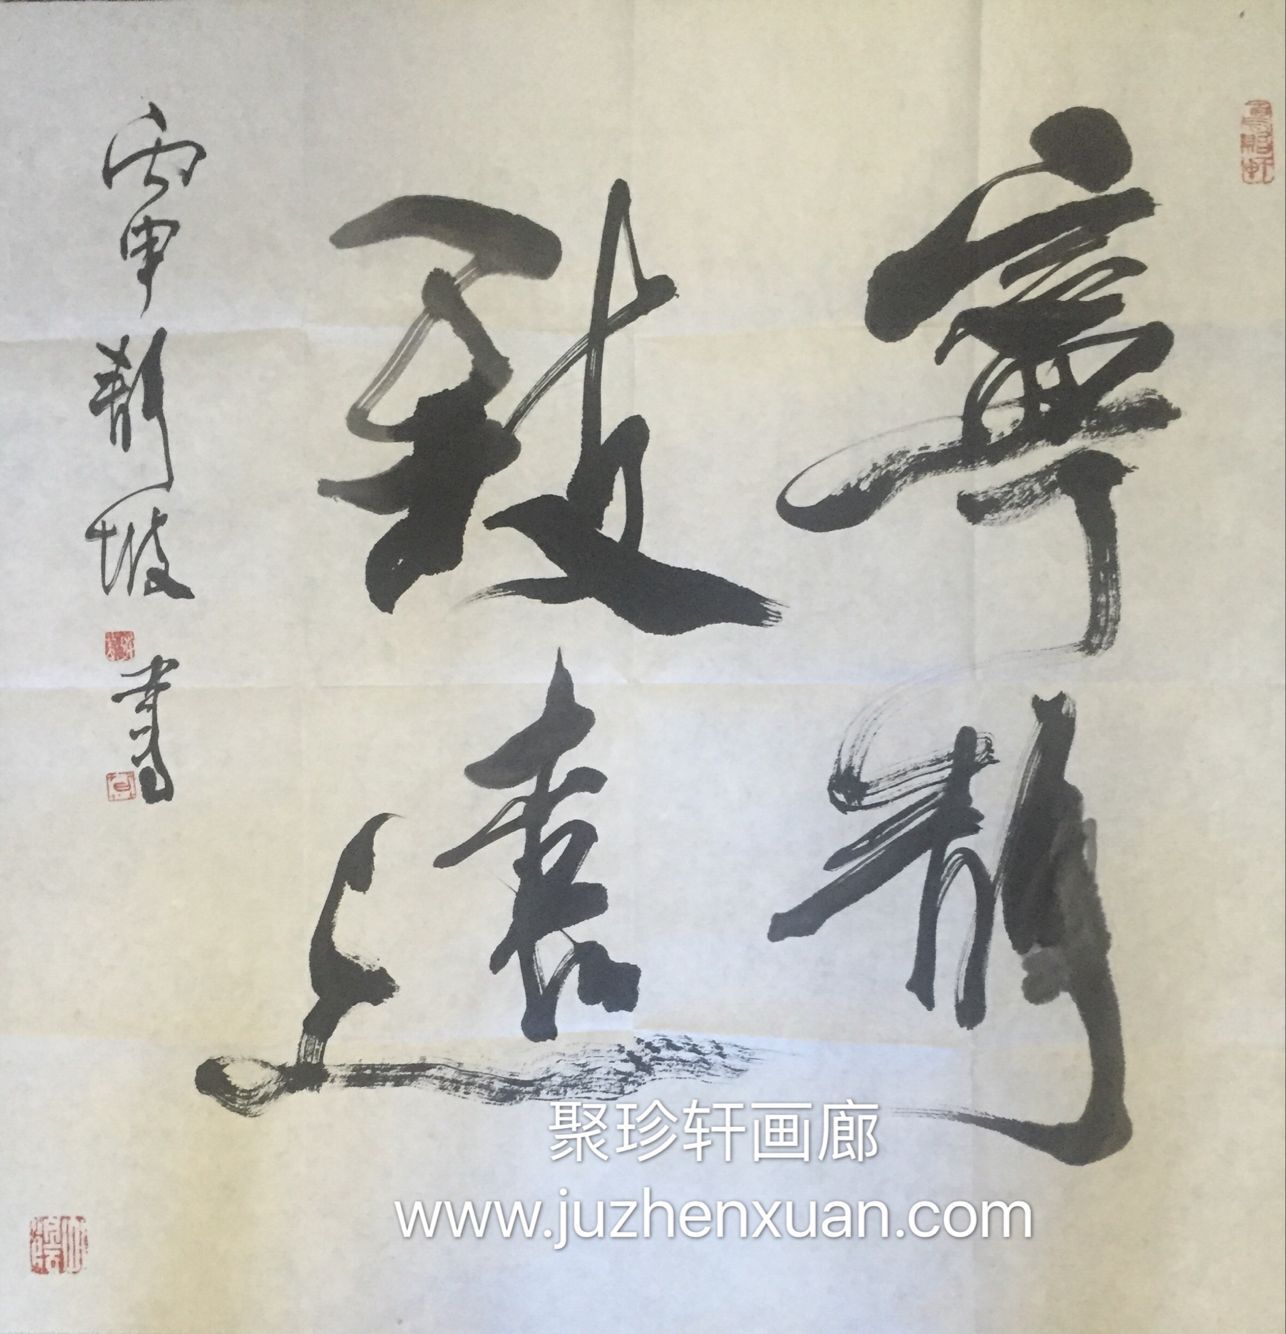 寧靜
致遠
丙申靜坡書
聚珍轩画廊
www.juzhenxuan.com